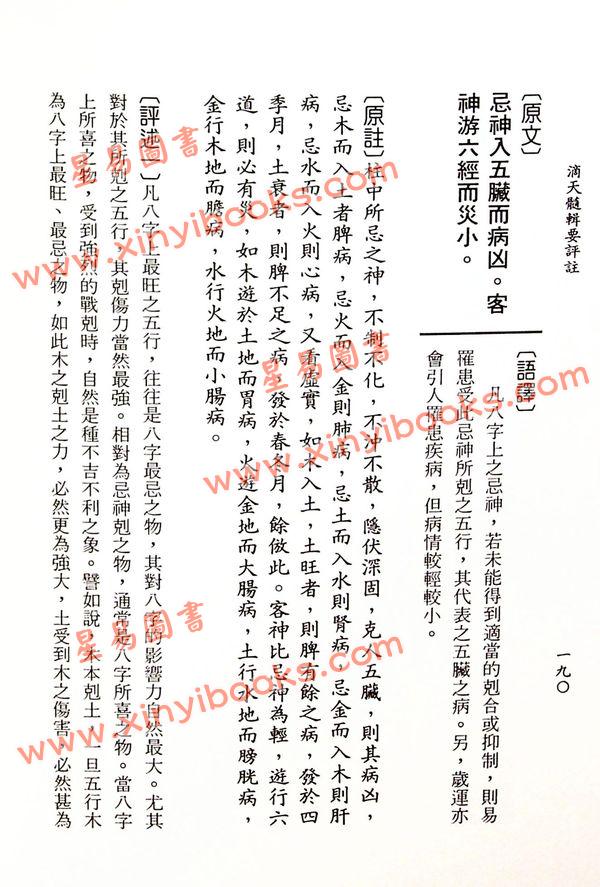 滴天髓輯要評註
一九〇
〔原文〕
忌神入五臟而病凶。客
神游六經而災小。
〔語譯〕
凡八字上之忌神，若未能得到適當的剋合或抑制，則易
罹患受此忌神所剋之五行，其代表之五臟之病。另，歲運亦
會引人罹患疾病，但病情較輕較小。
〔原註〕柱中所忌之神，不制不化，不冲不散，隱伏深固，克人五臟，則其病凶，
忌木而入土者脾病，忌火而入金則肺病，忌土而入水則腎病，忌金而入木則肝
病，忌水而入火則心病，又看虛實，如木入土，土旺者，則脾有餘之病，發於四
季月，土衰者，則脾不足之病，發於春冬月，餘倣此。客神比忌神為輕，遊行六
道，則必有災，如木遊於土地而胃病，火遊金地而大腸病，土行水地而膀胱病，
金行木地而膽病，水行火地而小腸病。
〔評述一〕凡八字上最旺之五行，往往是八字最忌之物，其對八字的影響力自然最大。尤其
對於其所剋之五行，其剋傷力當然最強。相對為忌神剋之物，通常是八字所喜之物。當八字
上所喜之物，受到強烈的戰剋時，自然是種不吉不利之象。譬如說，木本剋土，一旦五行木
為八字上最旺、最忌之物，如此木之剋土之力，必然更為強大，土受到木之傷害，必然甚為
星易圖書
www.xinyibooks.com
星易圖書
www.xinyibooks.com
星易圖書
www.xinyibooks.com